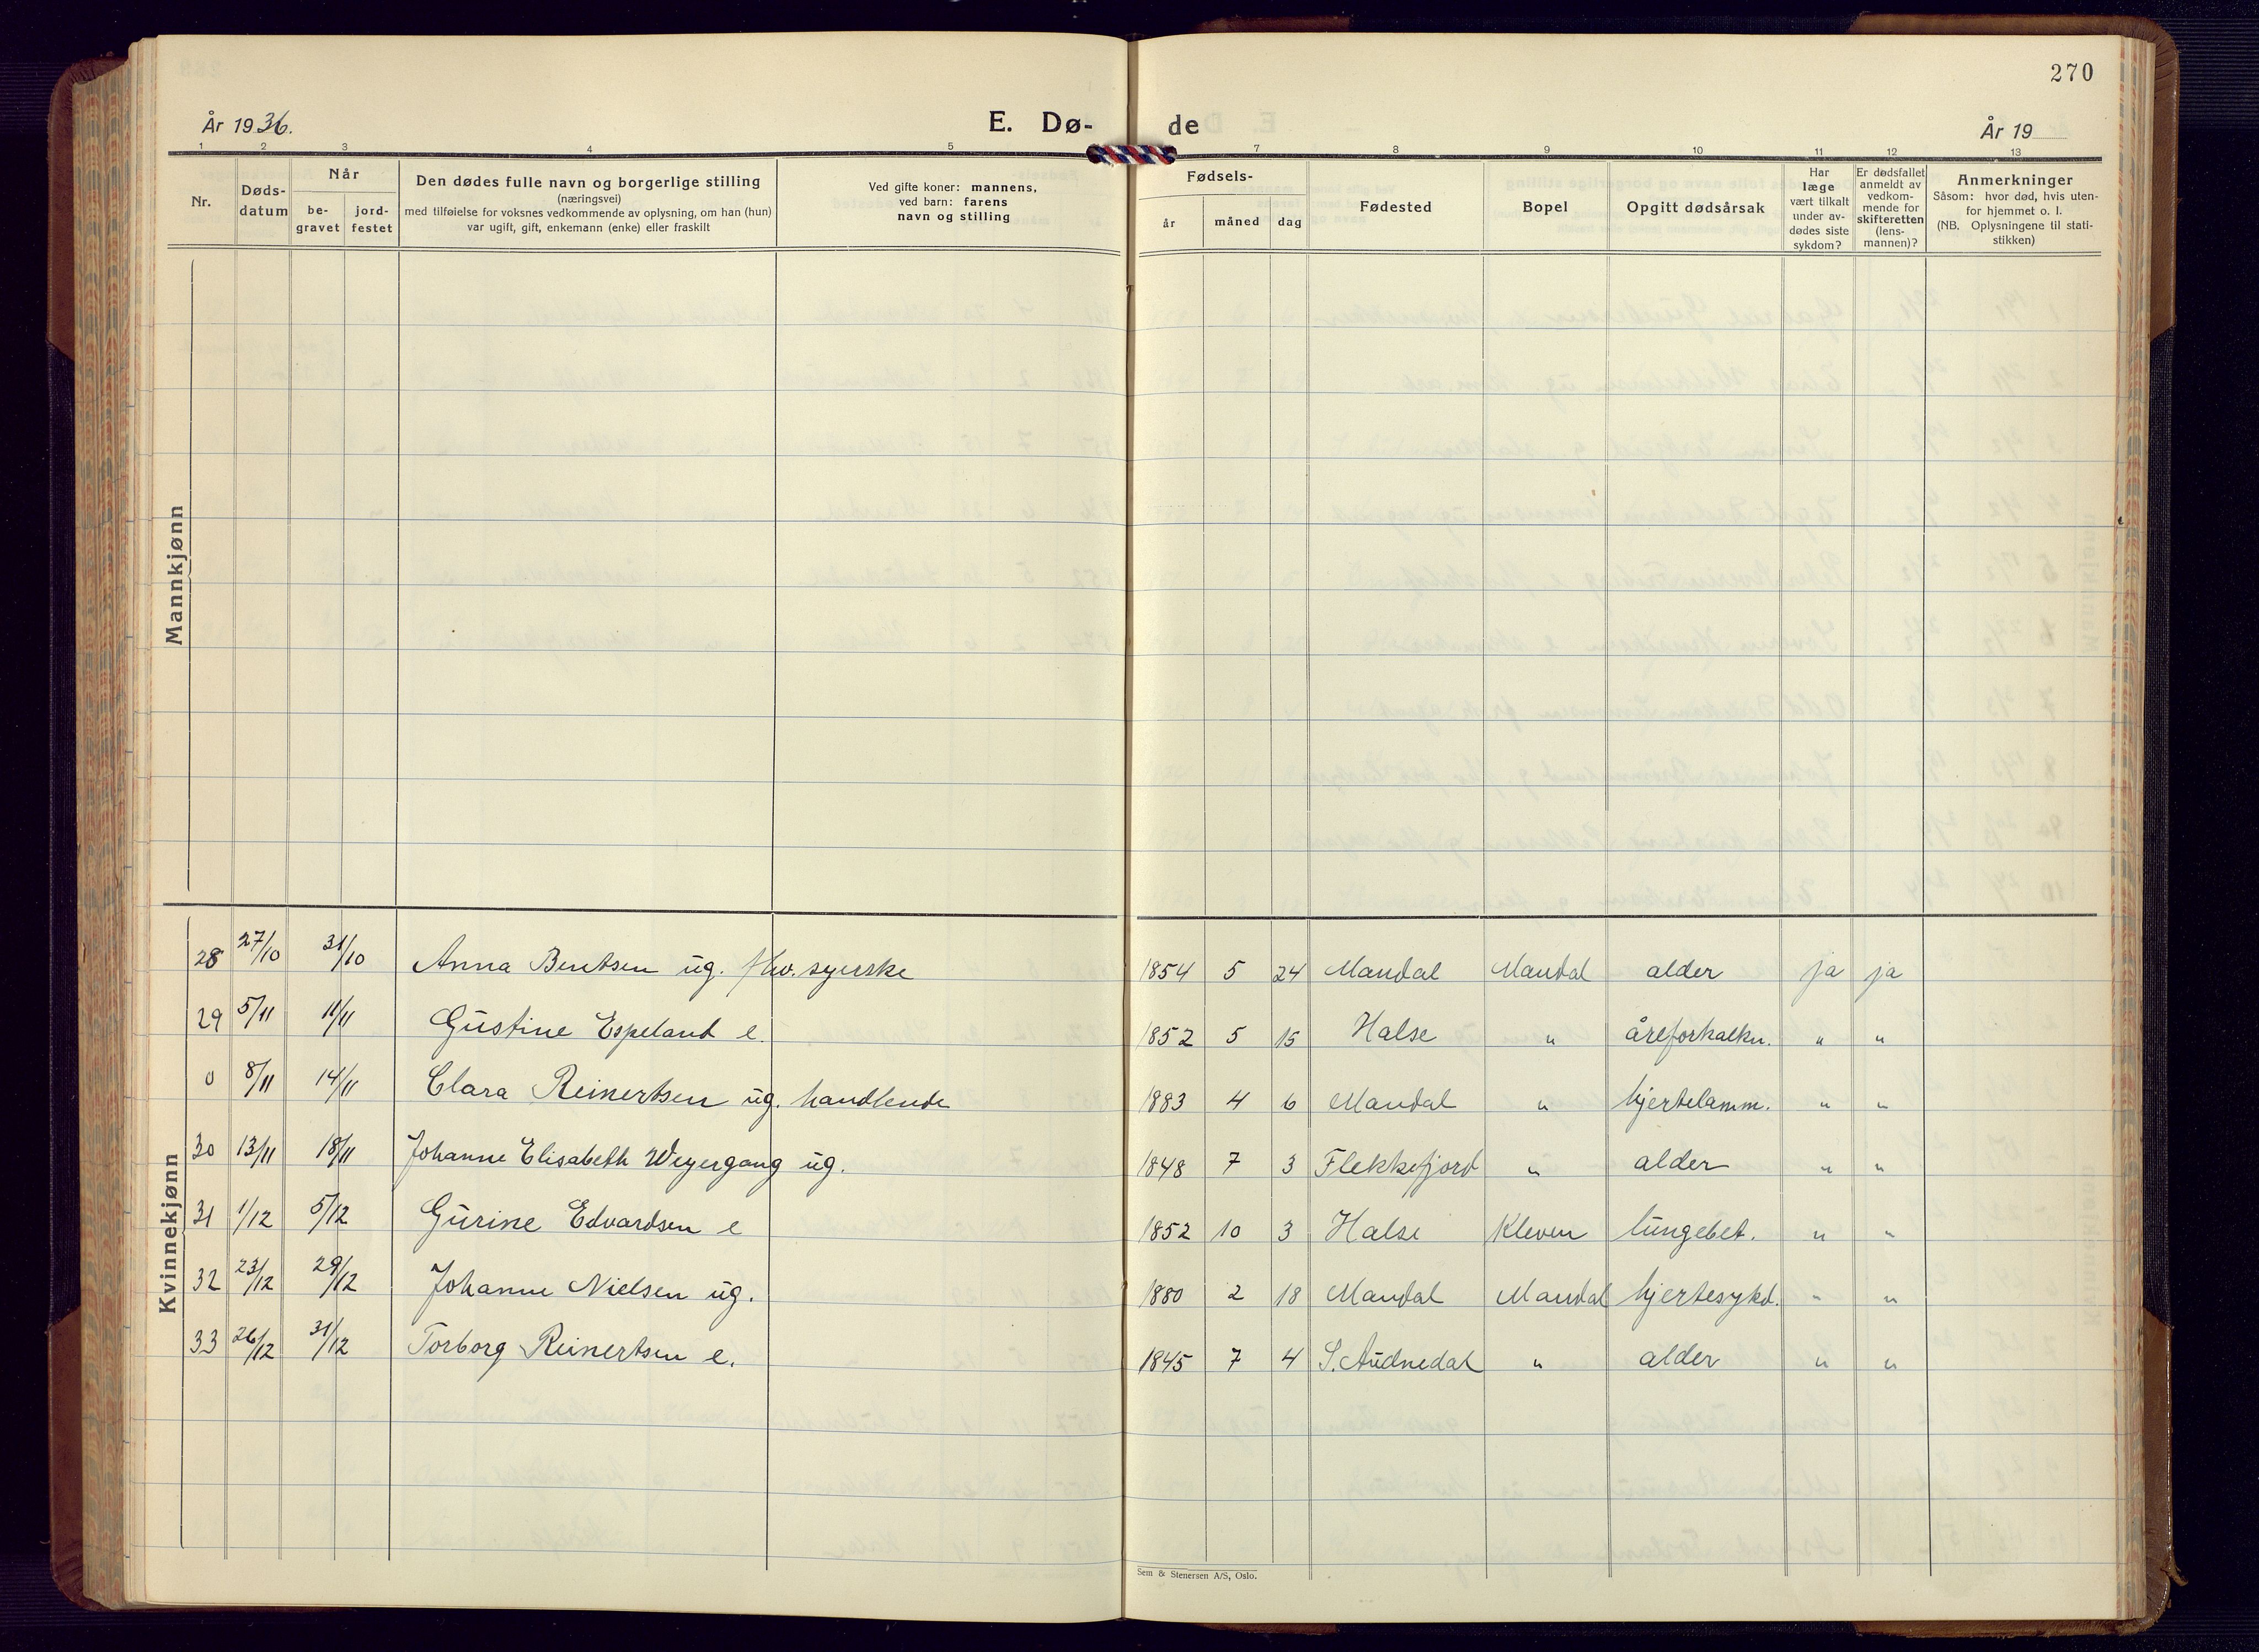 270
År 1936.
E. Dø-
de
År 19
1 2 3 4 5 7 8 9 10 11 12 13
Nr.
Døds-
datum
Når
be-
gravet
jord-
festet
Den dødes fulle navn og borgerlige stilling
(næringsvei)
med tilføielse for voksnes vedkommende av oplysning, om han (hun)
var ugift, gift, enkemann (enke) eller fraskilt
Ved gifte koner: mannens,
ved barn: farens
navn og stilling
Fødsels-
år måned dag
Fødested
Bopel
Opgitt dødsårsak
Har
læge
vært tilkalt
under av-
dødes siste
sykdom?
Er dødsfallet
anmeldt av
vedkom-
mende for
skifteretten
(lens-
mannen)?
Anmerkninger
Såsom: hvor død, hvis uten-
for hjemmet o. l.
(NB. Oplysningene til stati-
stikken)
Mannkjønn
Kvinnekjønn
28 27/10 31/10 Anna Bentsen ug. fhv. syerske 1854 5 24 Mandal Mandal alder ja ja
29 5/11 11/11 Gustine Espeland e. 1852 5 15 Halse " åreforkalkn. " "
0 8/11 14/11 Clara Reinertsen ug. handlende 1883 4 6 Mandal " hjertelamm. " "
30 13/11 18/11 Johanne Elisabeth Weyergang ug. 1848 7 3 Flekkefjord " alder " "
31 1/12 5/12 Gurine Edvardsen e 1852 10 3 Halse Kleven lungebet. " "
32 23/12 29/12 Johanne Nielsen ug. 1880 2 18 Mandal Mandal hjertesykd. " "
33 26/12 31/12 Torborg Reinertsen e. 1845 7 4 S. Audnedal " alder " "
Sem & Stenersen A/S, Oslo.